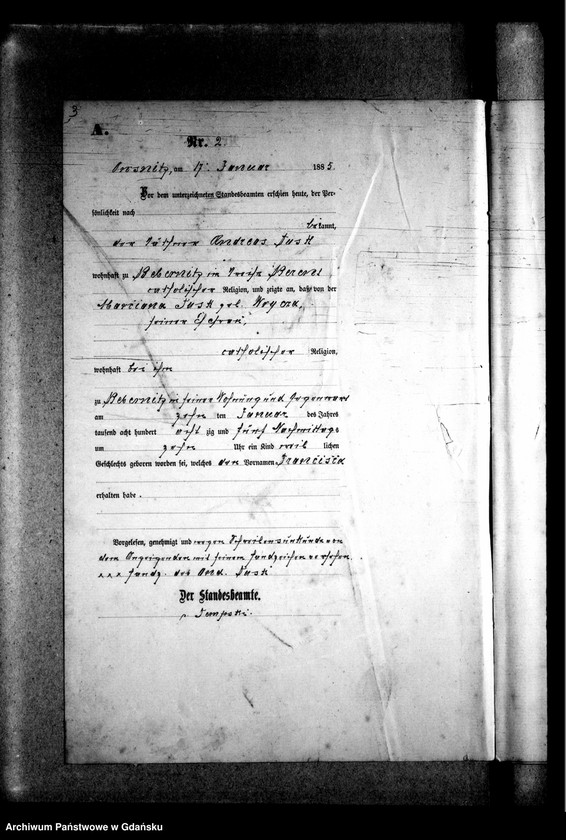 3
A.
Nr. 2
am 17. Januar 1885.
Vor dem unterzeichneten Standesbeamten erschien heute, der Per-
sönlichkeit nach
bekannt,
der Käthner Andreas Tusk
wohnhaft zu Bebernitz im Kreise Berent
catholischer Religion, und zeigte an, daß von der
Marciana Tusk geb.
seiner Ehefrau,
catholischer Religion,
wohnhaft bei ihm
zu Bebernitz in seiner Wohnung und Gegenwart
am zehn ten Januar des Jahres
tausend acht hundert acht zig und fünf Nachmittags
um zehn Uhr ein Kind weib lichen
Geschlechts geboren worden sei, welches den Vornamen Francisca
erhalten habe.
Vorgelesen, genehmigt und wegen Schreibensunkunde von
dem Anzeigenden mit seinem Handzeichen versehen.
xxx Handz. des And. Tusk
Der Standesbeamte.
v Tempski.
Archiwum Państwowe w Gdańsku